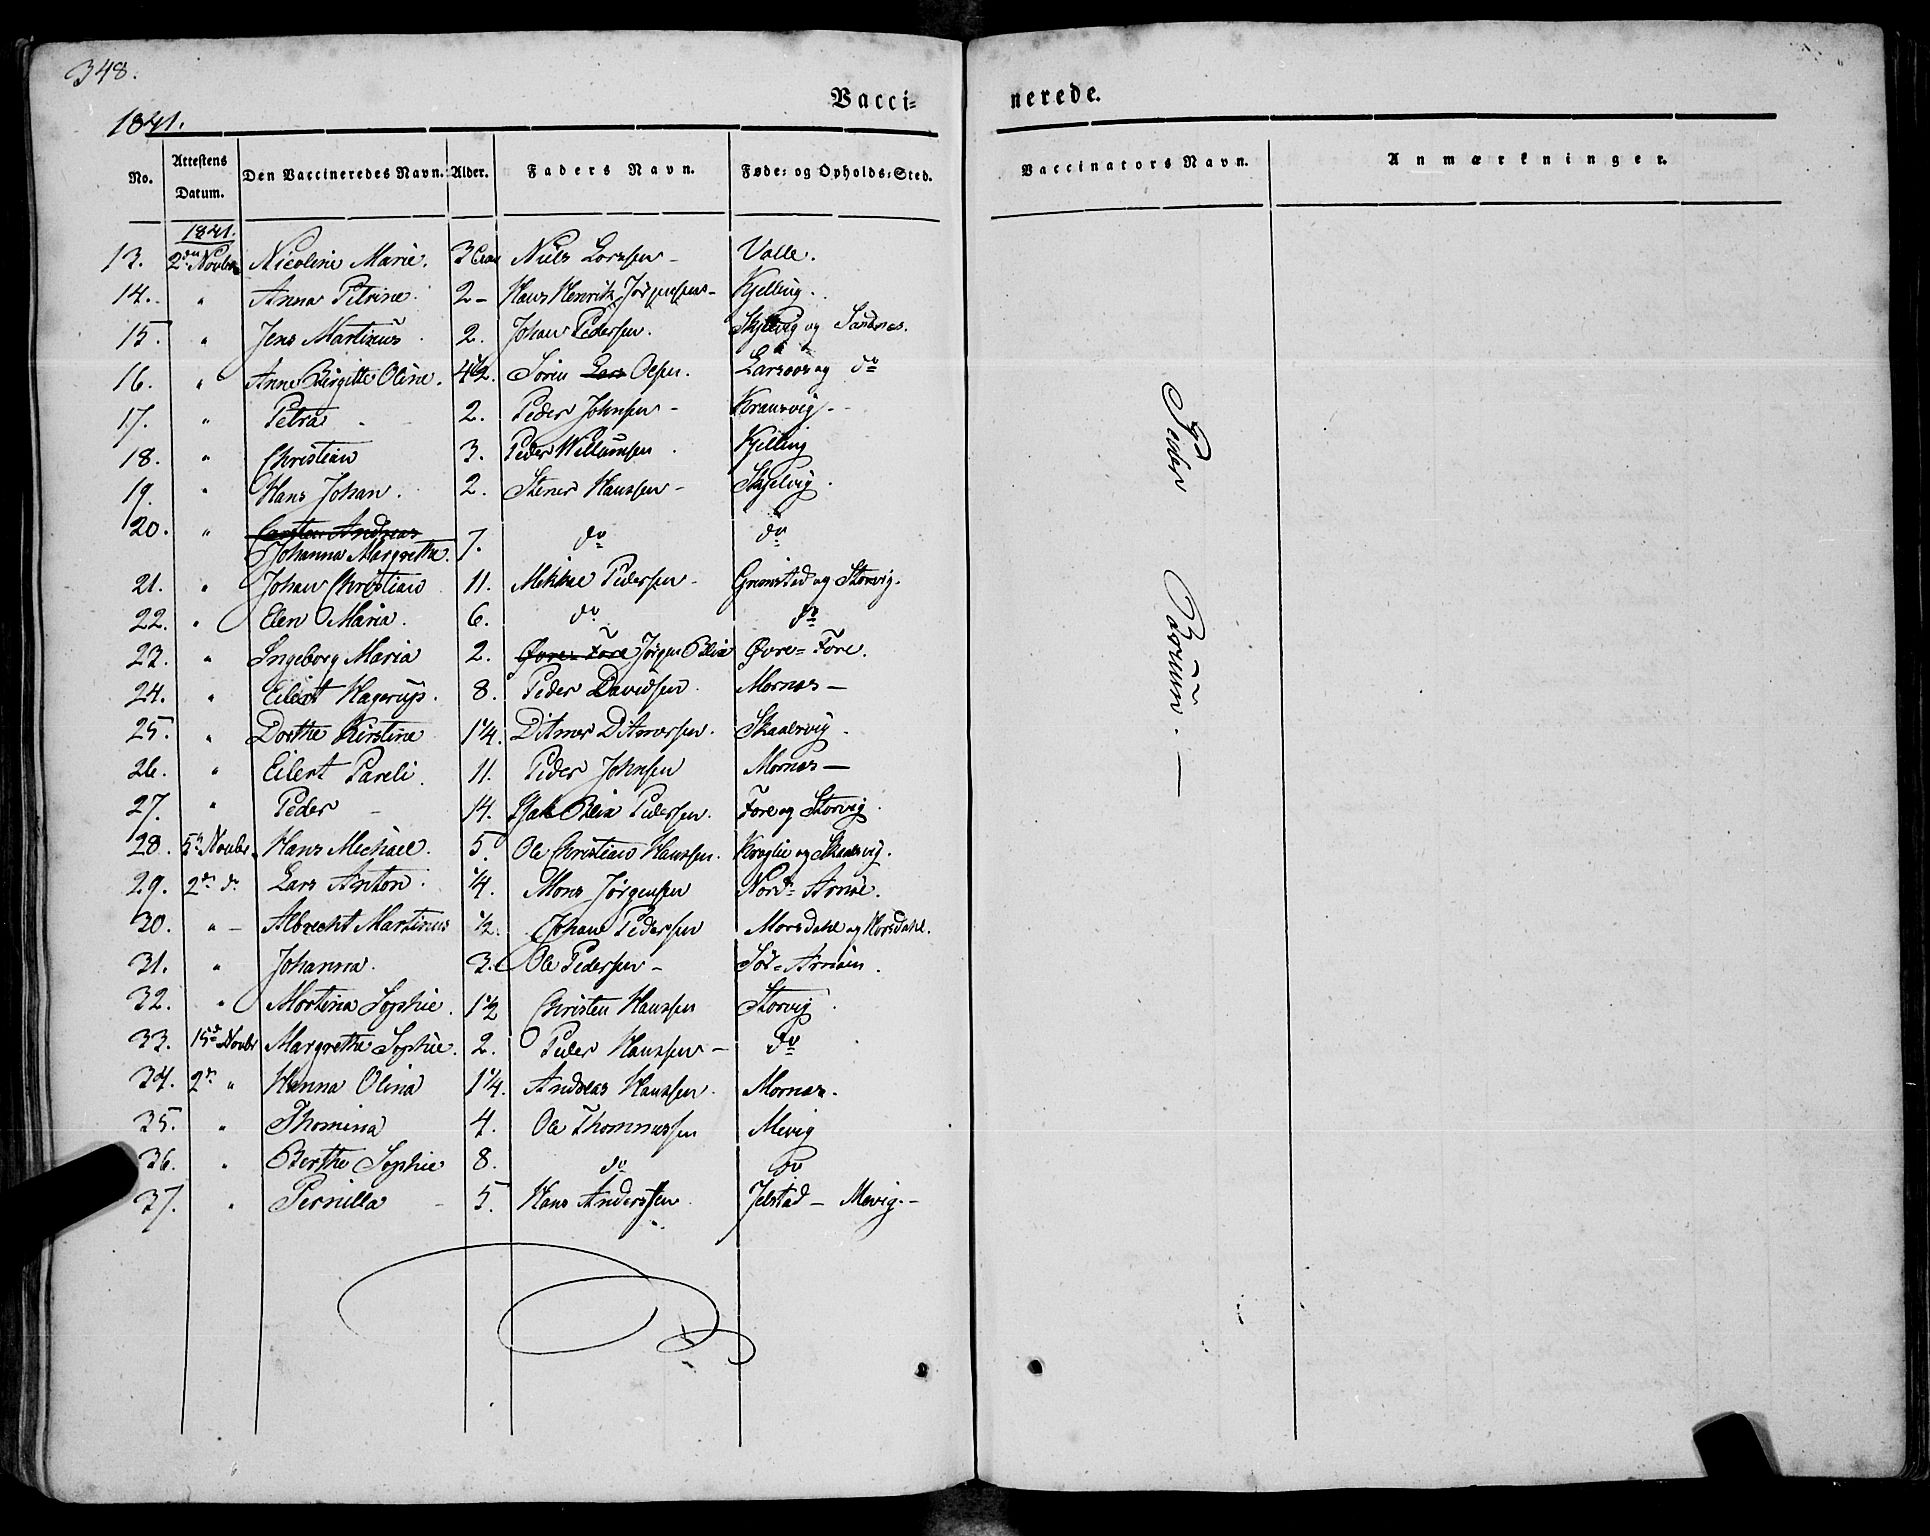 348.
Vacci= nerede.
1841.
No. Attestens Datum. Den Vaccineredes Navn. Alder. Faders Navn. Føde= og Opholds=Sted. Vaccinators Navn. Anmærkninger.
1841.
13. 2den Novbr Nicoline Marie. 3 Niels Larssen - Valle.
14. " Anna Petrine. 2 - Hans Henrik Jørgensen - Kjelling.
15. " Jens Martinus. 2. Johan Pedersen. og Sandnes.
16. " Anne Birgitte Oline. 4 1/2. Søren Lars Olsen. og do
17. " Petra 2. Peder Johnsen - 
18. " Christian 3. Peder Willumsen. Kjelling
19. " Hans Johan. 2. Stener Hanssen - Skjelvig.
20. " Carsten Andreas
Johanna Margrethe. 7. do do
21. " Johan Christian 11. Mekkel Pedersen - Grimstad og Storvig.
22. " Elen Maria. 6. do do
23. " Ingeborg Maria 2. Øvre=Fore Jørgen Blix Øvre=Fore.
24. " Eilert Hagerup. 8. Peder Davidsen. Mornæs -
25. " Dorthe Kirstine 1 1/4. Ditmer Ditmersen. Skaalsvig.
26. " Eilert Pareli. 11. Peder Johnsen Mornæs -
27. " Peder - 14. Isak Blix Pedersen. Fore og Storvig.
28. 5te Novbr. Hans Michael. 5. Ole Christian Hanssen. og Skaalsvig.
29. 2den do Lars Anton. 1/4. Mons Jørgensen Nord=Arnøe.
30. " - Albrecht Martinus 1/2. Johan Pedersen Morsdahl og Morsdahl.
31. " Johanna. 3. Ole Pedersen - Sør=Arnøen.
32. " Mortina Sophie. 1 1/2 Christen Hanssen Storvig.
33. 15de Novbr Margrethe Sophie. 2. Peder Hanssen - do
34. 2den " Hanna Olina 1 1/4. Andreas Hanssen. Mornæs.
35. " Thomina 4. Ole Thomassen Mevig
36. " Berthe Sophie 8. do do
37. " Pernilla - 5. Hans Anderssen. Jelstad - Mevig. -
Peder